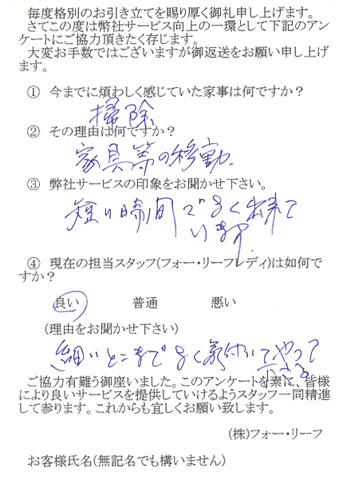 毎度格別のお引き立てを賜り厚く御礼申し上げます。
さてこの度は弊社サービス向上の一環として下記のアン
ケートにご協力頂きたく存じます。
大変お手数ではございますが御返送をお願い申し上げ
ます。
① 今までに煩わしく感じていた家事は何ですか？
掃除
② その理由は何ですか？
家具等の移動
③ 弊社サービスの印象をお聞かせ下さい。
短い時間でよく出来て
います。
④ 現在の担当スタッフ(フォー・リーフレディ)は如何で
すか？
良い 普通 悪い
(理由をお聞かせ下さい)
細いところまでよく気付いてやって
下さる
ご協力有難う御座いました。このアンケートを素に、皆様
により良いサービスを提供していけるようスタッフ一同精進
して参ります。これからも宜しくお願い致します。
(株)フォー・リーフ
お客様氏名(無記名でも構いません)